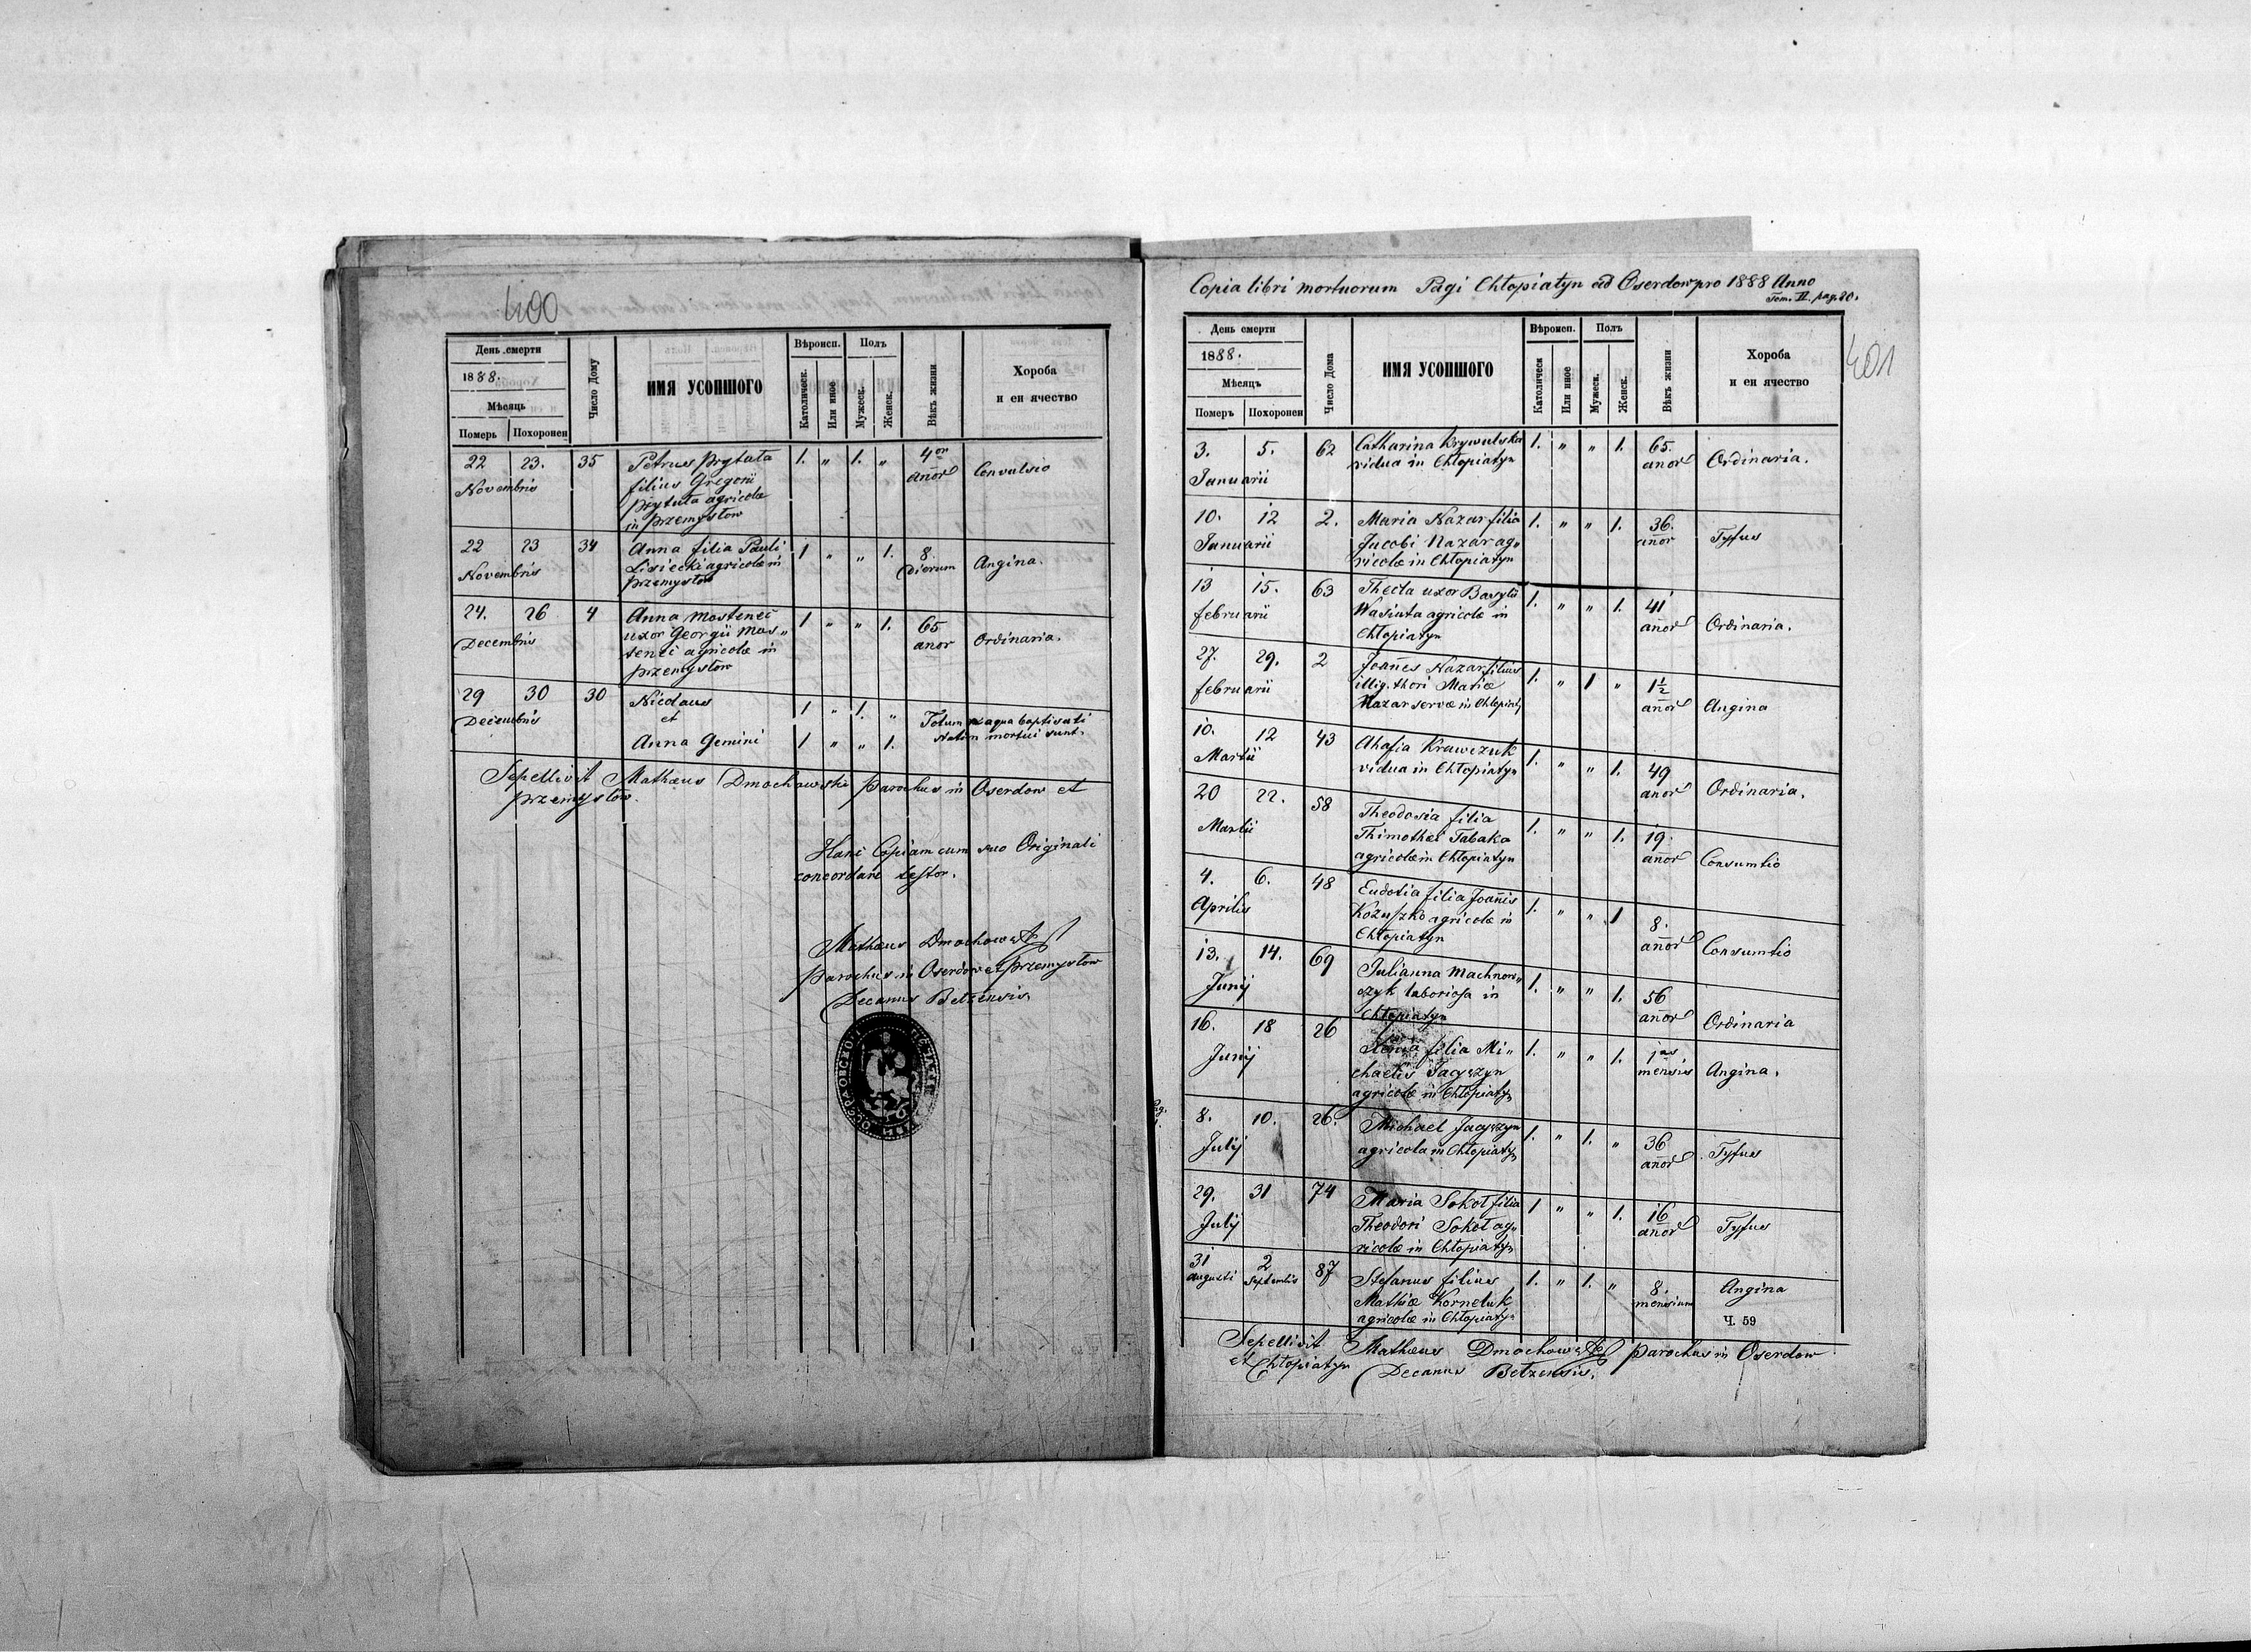 400
День смерти
1888.
Мѣсяць
Померь Похоронен
Число Дому
ИМЯ УСОПШОГО
Вѣроисп.
Католическ.
Или иное
Полъ
Мужеск.
Женск.
Вѣкъ жизни
Хороба
и еи ячество
22 23. 35 Petrus Prytuła 1. „ 1. „ 4or Convulsio
Novembris filius Gregorii anor
Prytuła agricolæ
in Przemysłow
22 23 34 Anna filia Pauli 1 „ „ 1. 8. Angina.
Novembris Lisiecki agricolæ in dierum
Przemysłow
24. 26 4 Anna Mostenci 1 „ „ 1. 65 Ordinaria.
Decembris uxor Georgii Mos„ anor
tenci agricolæ in
Przemysłow
29 30 30 Nicolaus 1 „ 1. „ Totum ex aqua baptisati
Decembris et statim mortui sunt.
Anna Gemini 1 „ „ 1.
Sepellivit Mathæus Dmochowski Parochus in Oserdow et
Przemysłow.
Hanc Copiam cum suo Originali
concordare testor.
Mathæus Dmochowski
Parochus in Oserdow et Przemysłow
Decanus Bełzensis
Copia libri mortuorum Pagi Chłopiatyn ad Oserdow pro 1888 Anno
Tom. II. pag. 20.
401
День смерти
1888.
Мѣсяцъ
Померъ Похоронен
Число Дома
ИМЯ УСОПШОГО
Вѣроисп.
Католическ
Или иное
Полъ
Мужеск.
Женск.
Вѣкъ жизни
Хороба
и еи ячество
3. 5. 62 Catharina Krywulska 1. „ „ 1. 65. Ordinaria.
Januarii vidua in Chłopiatyn anor
10. 12 2. Maria Nazar filia 1. „ „ 1. 36. Tyfus
Januarii Jacobi Nazar ag„ anor
ricolæ in Chłopiatyn
13 15. 63 Thecla uxor Basylii 1. „ „ 1. 41 Ordinaria.
februarii Wasiuta agricolæ in anor
Chłopiatyn
27. 29. 2 Joannes Nazar filius 1. „ 1 „ 1½ Angina
februarii illig. thori Mariæ anor
Nazar servæ in Chłopiaty
10. 12 43 Ahafia Krawczuk 1. „ „ 1. 49 Ordinaria.
Martii vidua in Chłopiatyn anor
20 22. 58 Theodosia filia 1. „ „ 1. 19. Consumtio
Martii Thimothei Tabaka anor
agricolæ in Chłopiatyn
4. 6. 48 Eudotia filia Joannis 1. „ „ 1 8. Consumtio
Aprilis Kozuszko agricolæ in anor
Chłopiatyn
13. 14. 69 Julianna Machnow„ 1. „ „ 1. 56 Ordinaria
Junij czyk laboriosa in anor
Chłopiatyn
16. 18 26 filia Mi„ 1. „ „ 1. 1as Angina.
Junij chaelis Jacyszyn mensis
agricolæ in Chłopiatyn
8. 10. 26. Michael Jacyszyn 1. „ 1. „ 36 Tyfus
Julij agricola in Chłopiatyn anor
29. 31 74 Maria Sokoł filia 1 „ „ 1. 16 Tyfus
Julij Theodori Sokoł ag„ anor
ricolæ in Chłopiatyn
31 2 87 Stefanus filius 1. „ 1. „ 8. Angina
Augusti Septembis Mathiæ Korneluk mensium
agricolæ in Chłopiatyn
Ч. 59
Sepellivit Mathæus Dmochowski Parochus in Oserdow
et Chłopiatyn Decanus Bełzensis.